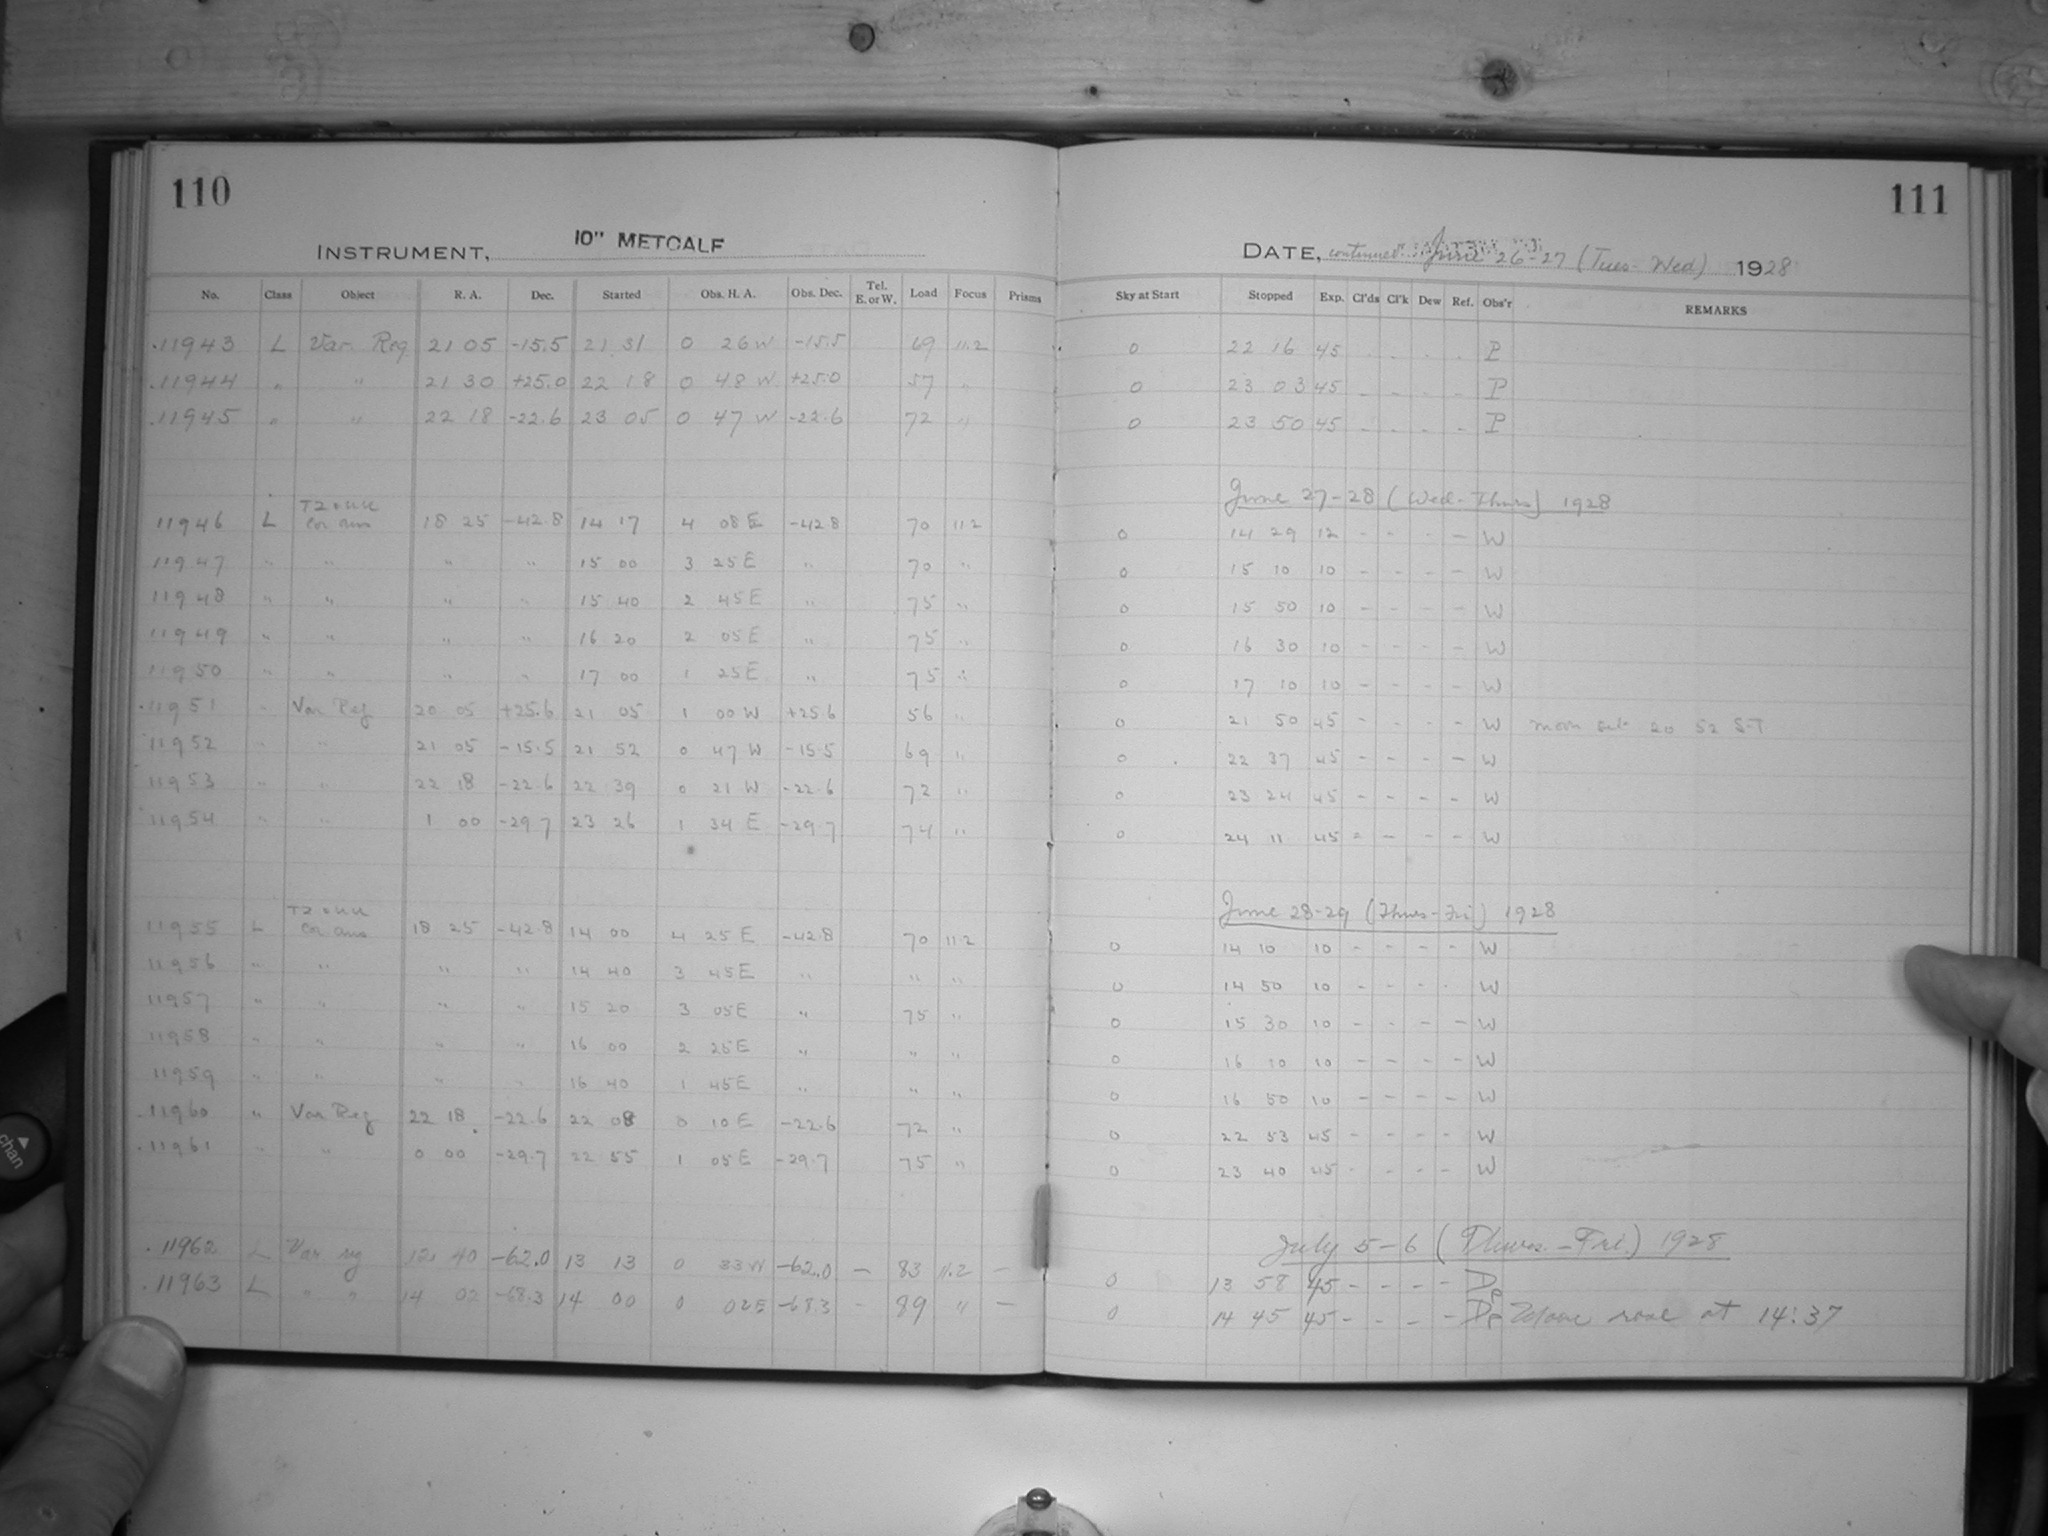 110
INSTRUMENT, 10" METCALF
No. Class Object R. A. Dec. Started Obs. H. A. Obs. Dec. Tel. E. or W. Load Focus Prisms
.11943 L Var. Reg 21 05 -15.5 21 31 0 26 W -15.5 69 11.2
.11944 " " 21 30 +25.0 22 18 0 48 W +25.0 57 "
.11945 " " 22 18 -22.6 23 05 0 47 W -22.6 72 "
11946 L Cor Aus 18 25 -42.8 14 17 4 08 E -42.8 70 11.2
11947 " " " " 15 00 3 25 E " 70 "
11948 " " " " 15 40 2 45 E " 75 "
11949 " " " " 16 20 2 05 E " 75 "
11950 " " " " 17 00 1 25 E " 75 "
.11951 " Var Reg 20 05 +25.6 21 05 1 00 W +25.6 56 "
11952 " " 21 05 -15.5 21 52 0 47 W -15.5 69 "
11953 " " 22 18 -22.6 22 39 0 21 W -22.6 72 "
11954 " " 1 00 -29.7 23 26 1 34 E -29.7 74 "
11955 L Cor Aus 18 25 -42.8 14 00 4 25 E -42.8 70 11.2
11956 " " " " 14 40 3 45 E " " "
11957 " " " " 15 20 3 05 E " 75 "
11958 " " " " 16 00 2 25 E " " "
11959 " " " " 16 40 1 45 E " " "
.11960 " Var Reg 22 18 -22.6 22 08 0 10 E -22.6 72 "
.11961 " " 0 00 -29.7 22 55 1 05 E -29.7 75 "
.11962 L Var reg 12 40 -62.0 13 13 0 33 W -62.0 - 83 11.2 -
.11963 L " " 14 02 -68.3 14 00 0 02 E -68.3 - 89 " -
111
DATE, continued June 26-27 (Tues-Wed) 1928
Sky at Start Stopped Exp. Cl'ds Cl'k Dew Ref. Obs'r REMARKS
0 22 16 45 - - - - P
0 23 03 45 - - - - P
0 23 50 45 - - - - P
June 27-28 (Wed-Thurs) 1928
0 14 29 12 - - - - W
0 15 10 10 - - - - W
0 15 50 10 - - - - W
0 16 30 10 - - - - W
0 17 10 10 - - - - W
0 21 50 45 - - - - W moon set 20 52 S-T
0 22 37 45 - - - - W
0 23 24 45 - - - - W
0 24 11 45 - - - - W
June 28-29 (Thurs-Fri) 1928
0 14 10 10 - - - - W
0 14 50 10 - - - - W
0 15 30 10 - - - - W
0 16 10 10 - - - - W
0 16 50 10 - - - - W
0 22 53 45 - - - - W
0 23 40 45 - - - - W
July 5-6 (Thurs.-Fri.) 1928
0 13 58 45 - - - - Dp
0 14 45 45 - - - - Dp Moon rose at 14:37
chan